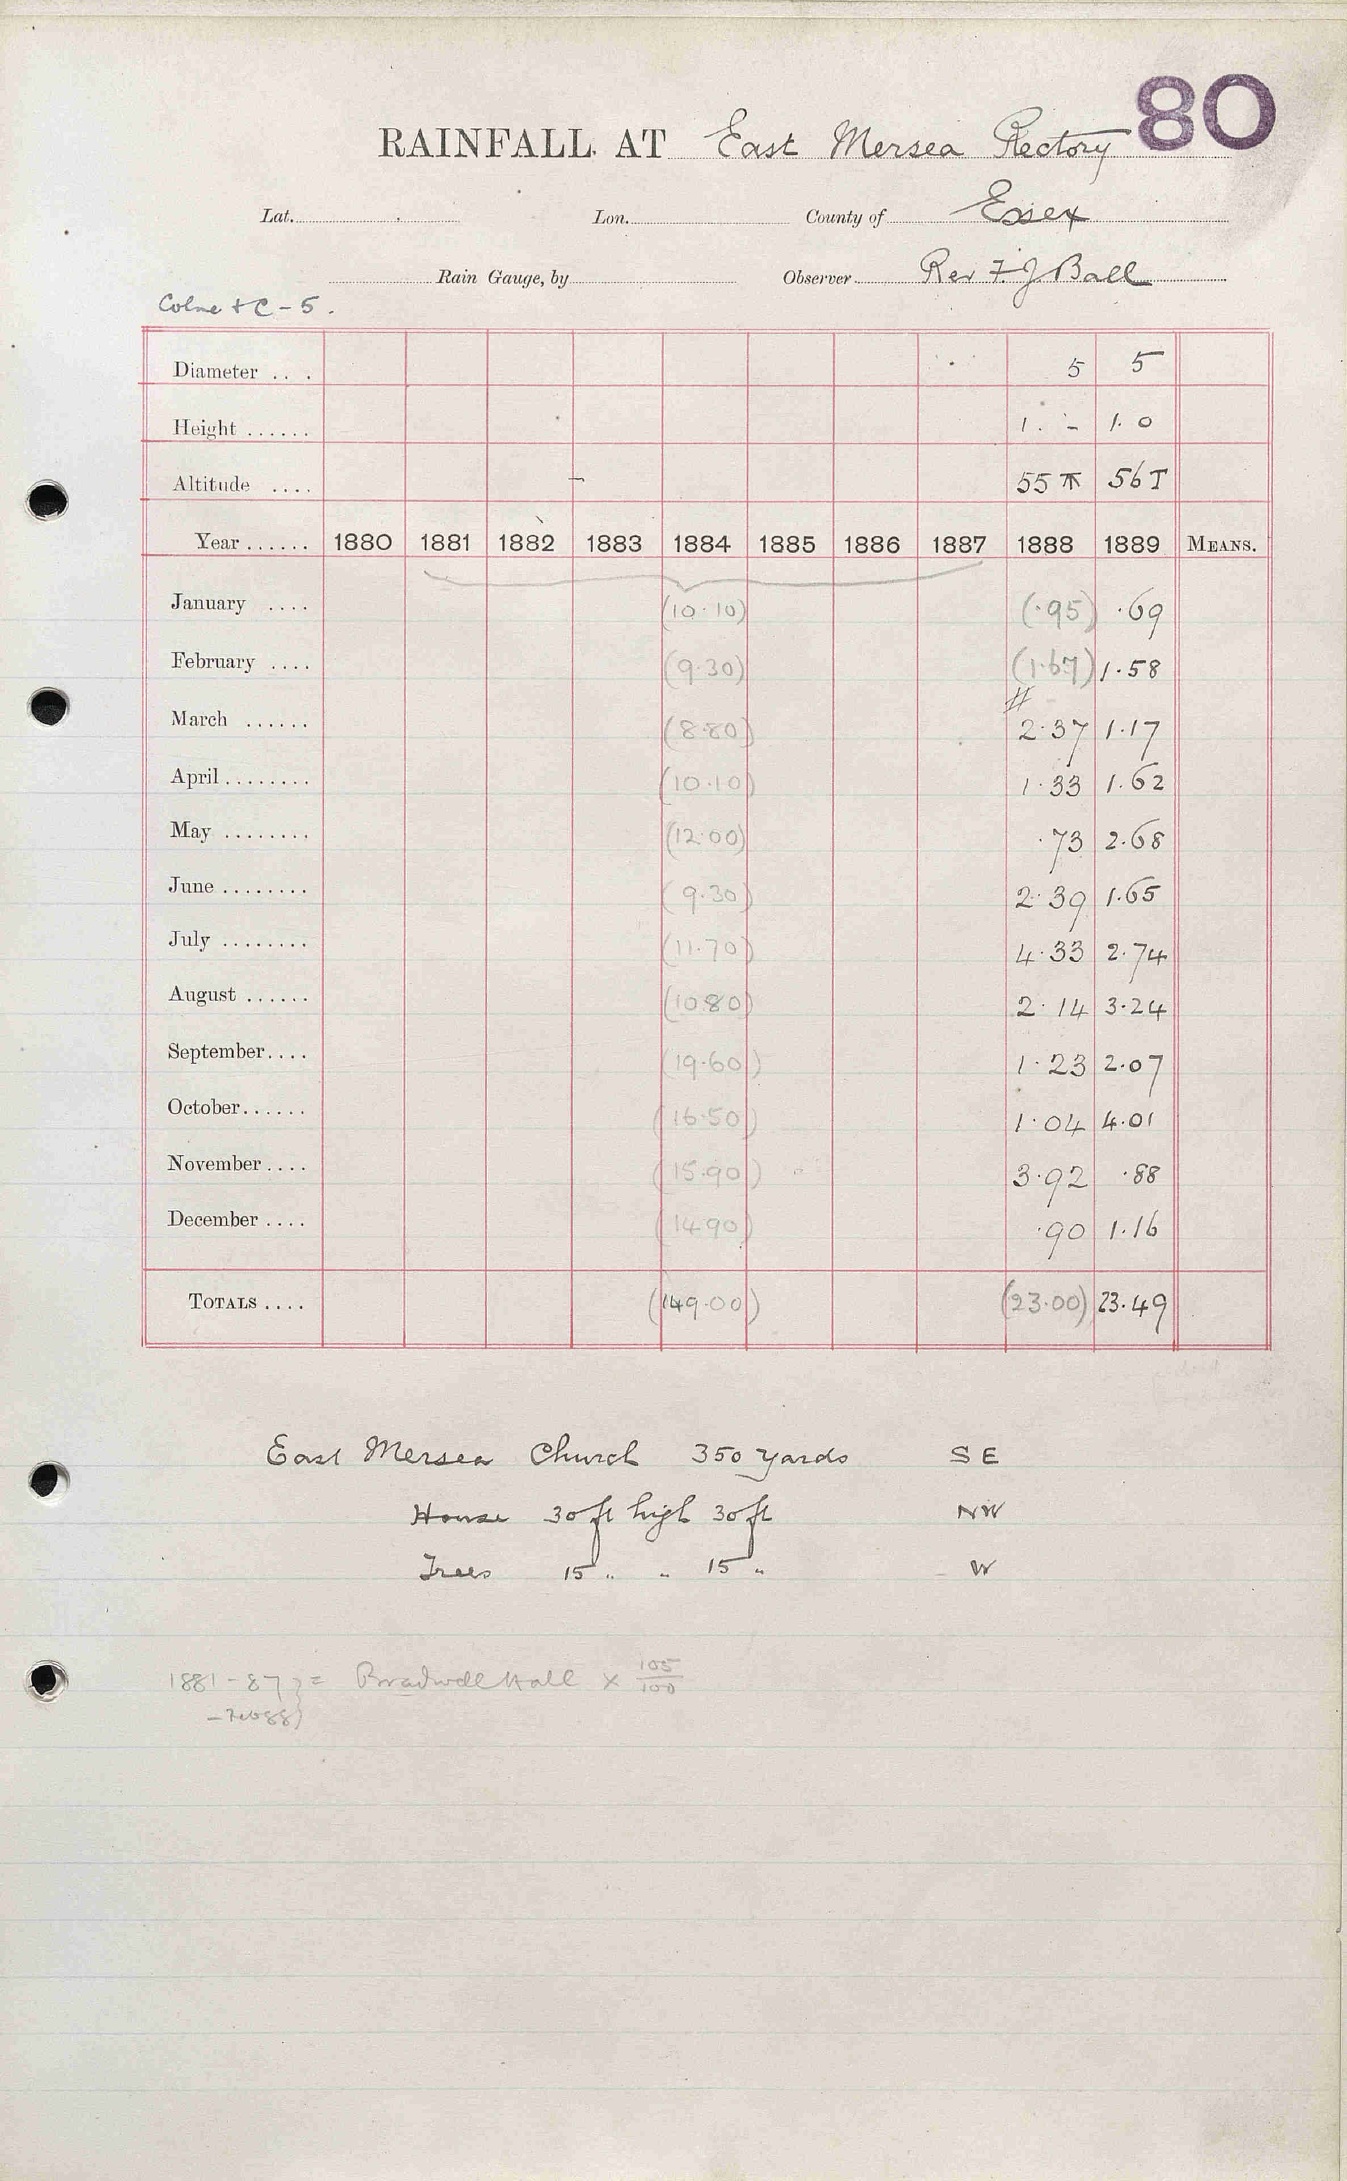 80
RAINFALL AT East Mersea Rectory
Lat. Lon. County of Essex
Rain Gauge, by Observer Rev F. J Ball
Colne + C - 5.
Diameter ... 5 5
Height ...... 1. - 1. 0
Altitude .... 55 T 56 T
Year ...... 1880 1881 1882 1883 1884 1885 1886 1887 1888 1889 MEANS.
January .... (10.10) (.95) .69
February .... (9.30) (1.67) 1.58
March ...... (8.80) # 2.37 1.17
April ........ (10.10) 1.33 1.62
May ........ (12.00) .73 2.68
June ........ (9.30) 2.39 1.65
July ........ (11.70) 4.33 2.74
August ...... (10.80) 2.14 3.24
September.... (19.60) 1.23 2.07
October...... (16.50) 1.04 4.01
November.... (15.90) 3.92 .88
December .... (14.90) .90 1.16
TOTALS .... (149.00) (23.00) 23.49
East Mersea Church 350 yards S E
House 30 ft high 30 ft NW
Trees 15 " " 15 " W
1881 - 87 } = Bradwell Hall × 105/100
- Feb 88 }